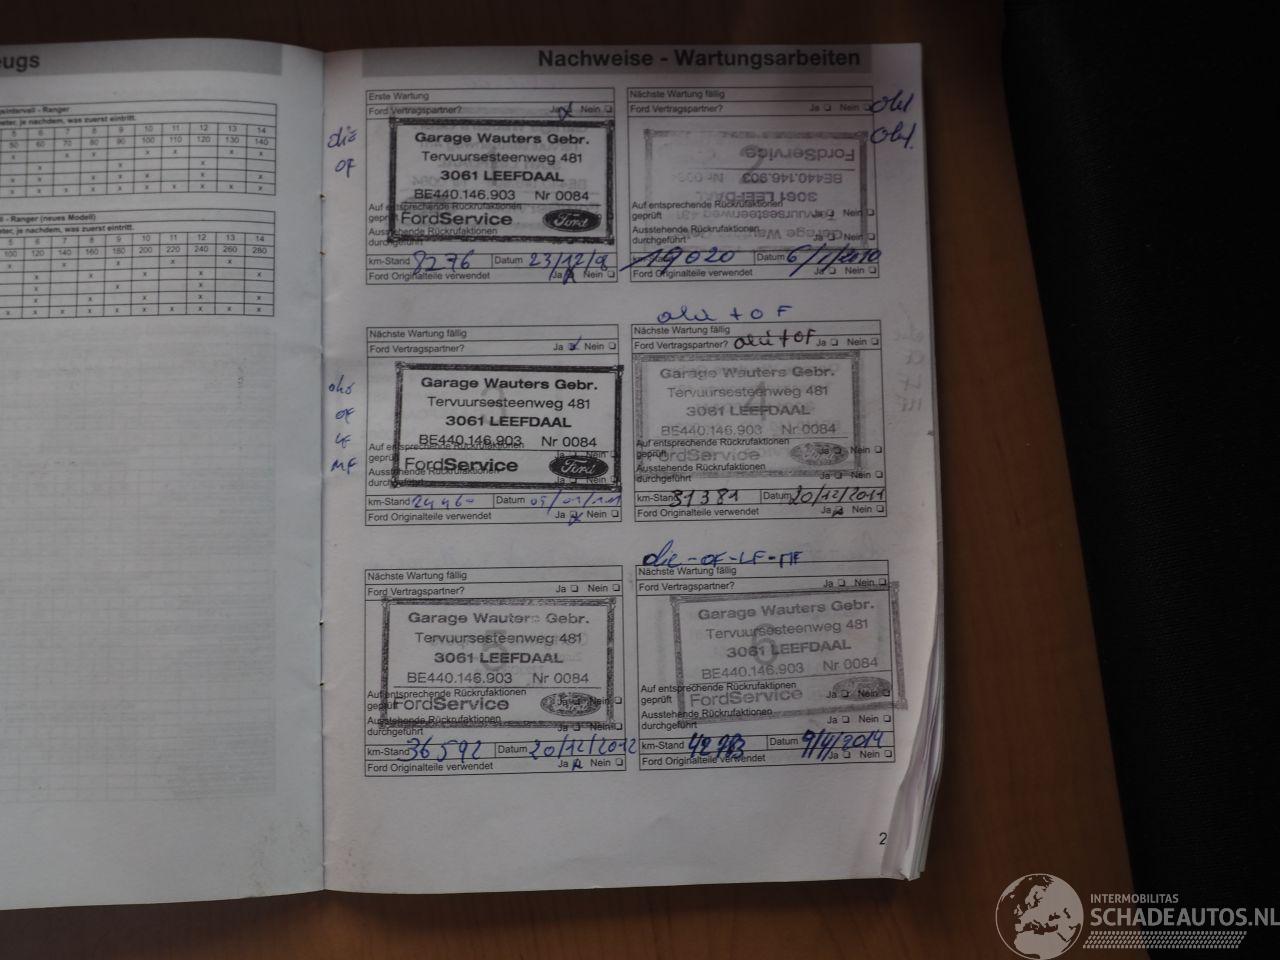 eugs
Nachweise - Wartungsarbeiten
gsintervall - Ranger
meter, je nachdem, was zuerst eintritt.
5 6 7 8 9 10 11 12 13 14
50 60 70 80 90 100 110 120 130 140
ll - Ranger (neues Modell)
meter, je nachdem, was zuerst eintritt.
5 6 7 8 9 10 11 12 13 14
100 120 140 160 180 200 220 240 260 280
Erste Wartung
Ford Vertragspartner? Ja Nein
OF
Garage Wauters Gebr.
Tervuursesteenweg 481
3061 LEEFDAAL
BE440.146.903 Nr 0084
Auf entsprechende Rückrufaktionen
geprüft
FordService
Ford
Ausstehende Rückrufaktionen
durchgeführt
km-Stand 8276 Datum 23/12/8
Ford Originalteile verwendet Ja Nein
Nächste Wartung fällig
Ford Vertragspartner? Ja Nein
FordService
BE440.146.903
3061 LEEFDAAL
Tervuursesteenweg 481
Garage Wauters Gebr.
Auf entsprechende Rückrufaktionen
geprüft Ja Nein
Ausstehende Rückrufaktionen
durchgeführt Ja Nein
km-Stand 19020 Datum 6/1/2010
Ford Originalteile verwendet Ja Nein
Nächste Wartung fällig
Ford Vertragspartner? Ja Nein
OF
LF
MF
Garage Wauters Gebr.
Tervuursesteenweg 481
3061 LEEFDAAL
BE440.146.903 Nr 0084
Auf entsprechende Rückrufaktionen
geprüft
FordService
Ford
Ausstehende Rückrufaktionen
durchgeführt
km-Stand 24460 Datum 05/01/11
Ford Originalteile verwendet Ja Nein
olie + OF
Nächste Wartung fällig
Ford Vertragspartner? olie + OF Ja Nein
Garage Wauters Gebr.
Tervuursesteenweg 481
3061 LEEFDAAL
BE440.146.903 Nr 0084
Auf entsprechende Rückrufaktionen
geprüft Ja Nein
FordService
Ausstehende Rückrufaktionen
durchgeführt Ja Nein
km-Stand 31381 Datum 20/12/2011
Ford Originalteile verwendet Ja Nein
Nächste Wartung fällig
Ford Vertragspartner? Ja Nein
Garage Wauters Gebr.
Tervuursesteenweg 481
3061 LEEFDAAL
BE440.146.903 Nr 0084
Auf entsprechende Rückrufaktionen
geprüft Ja Nein
FordService
Ausstehende Rückrufaktionen
durchgeführt Ja Nein
km-Stand 36592 Datum 20/12/2012
Ford Originalteile verwendet Ja Nein
olie - OF - LF - MF
Nächste Wartung fällig
Ford Vertragspartner? Ja Nein
Garage Wauters Gebr.
Tervuursesteenweg 481
3061 LEEFDAAL
BE440.146.903 Nr 0084
Auf entsprechende Rückrufaktionen
geprüft Ja Nein
FordService
Ausstehende Rückrufaktionen
durchgeführt Ja Nein
km-Stand Datum 9/4/2014
Ford Originalteile verwendet Ja Nein
2
INTERMOBILITAS
SCHADEAUTOS.NL